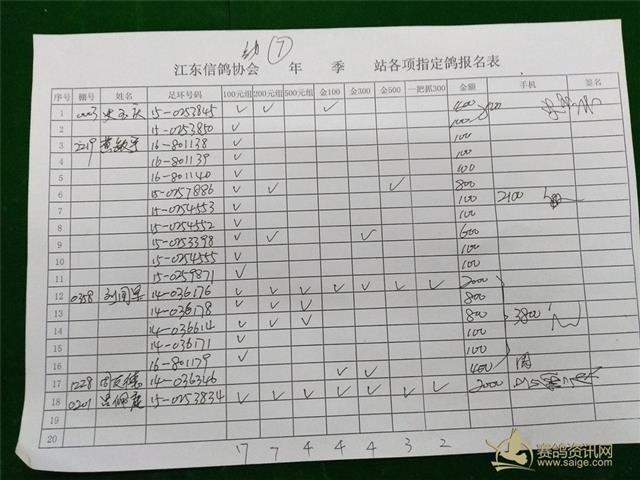 幼 ⑦
江东信鸽协会 年 季 站各项指定鸽报名表
序号 棚号 姓名 足环号码 100元组 200元组 500元组 金100 金300 金500 一把抓300 金额 手机 签名
1 0003 15-0253845 ✓ ✓ ✓ 400
2 15-0253850 ✓ 100
3 2219 16-801138 ✓ 100
4 16-801139 ✓ 100
5 16-801140 ✓ 100
6 15-0257886 ✓ ✓ ✓ 800
7 15-0254553 ✓ 100 2100
8 15-0254552 ✓ 100
9 15-0253398 ✓ ✓ ✓ 600
10 15-0254555 ✓ 100
11 15-0259871 ✓ 100
12 0358 14-036176 ✓ ✓ ✓ ✓ ✓ ✓ ✓ 2000
13 14-036178 ✓ ✓ ✓ 800
14 14-036614 ✓ ✓ ✓ 800 3800
15 14-036171 ✓ 100
16 16-801179 ✓ 100
17 1228 14-036346 ✓ ✓ 400
18 0201 15-0253834 ✓ ✓ ✓ ✓ ✓ ✓ ✓ 2000
19
20
17 7 4 4 4 3 2
赛鸽资讯网
www.saige.com